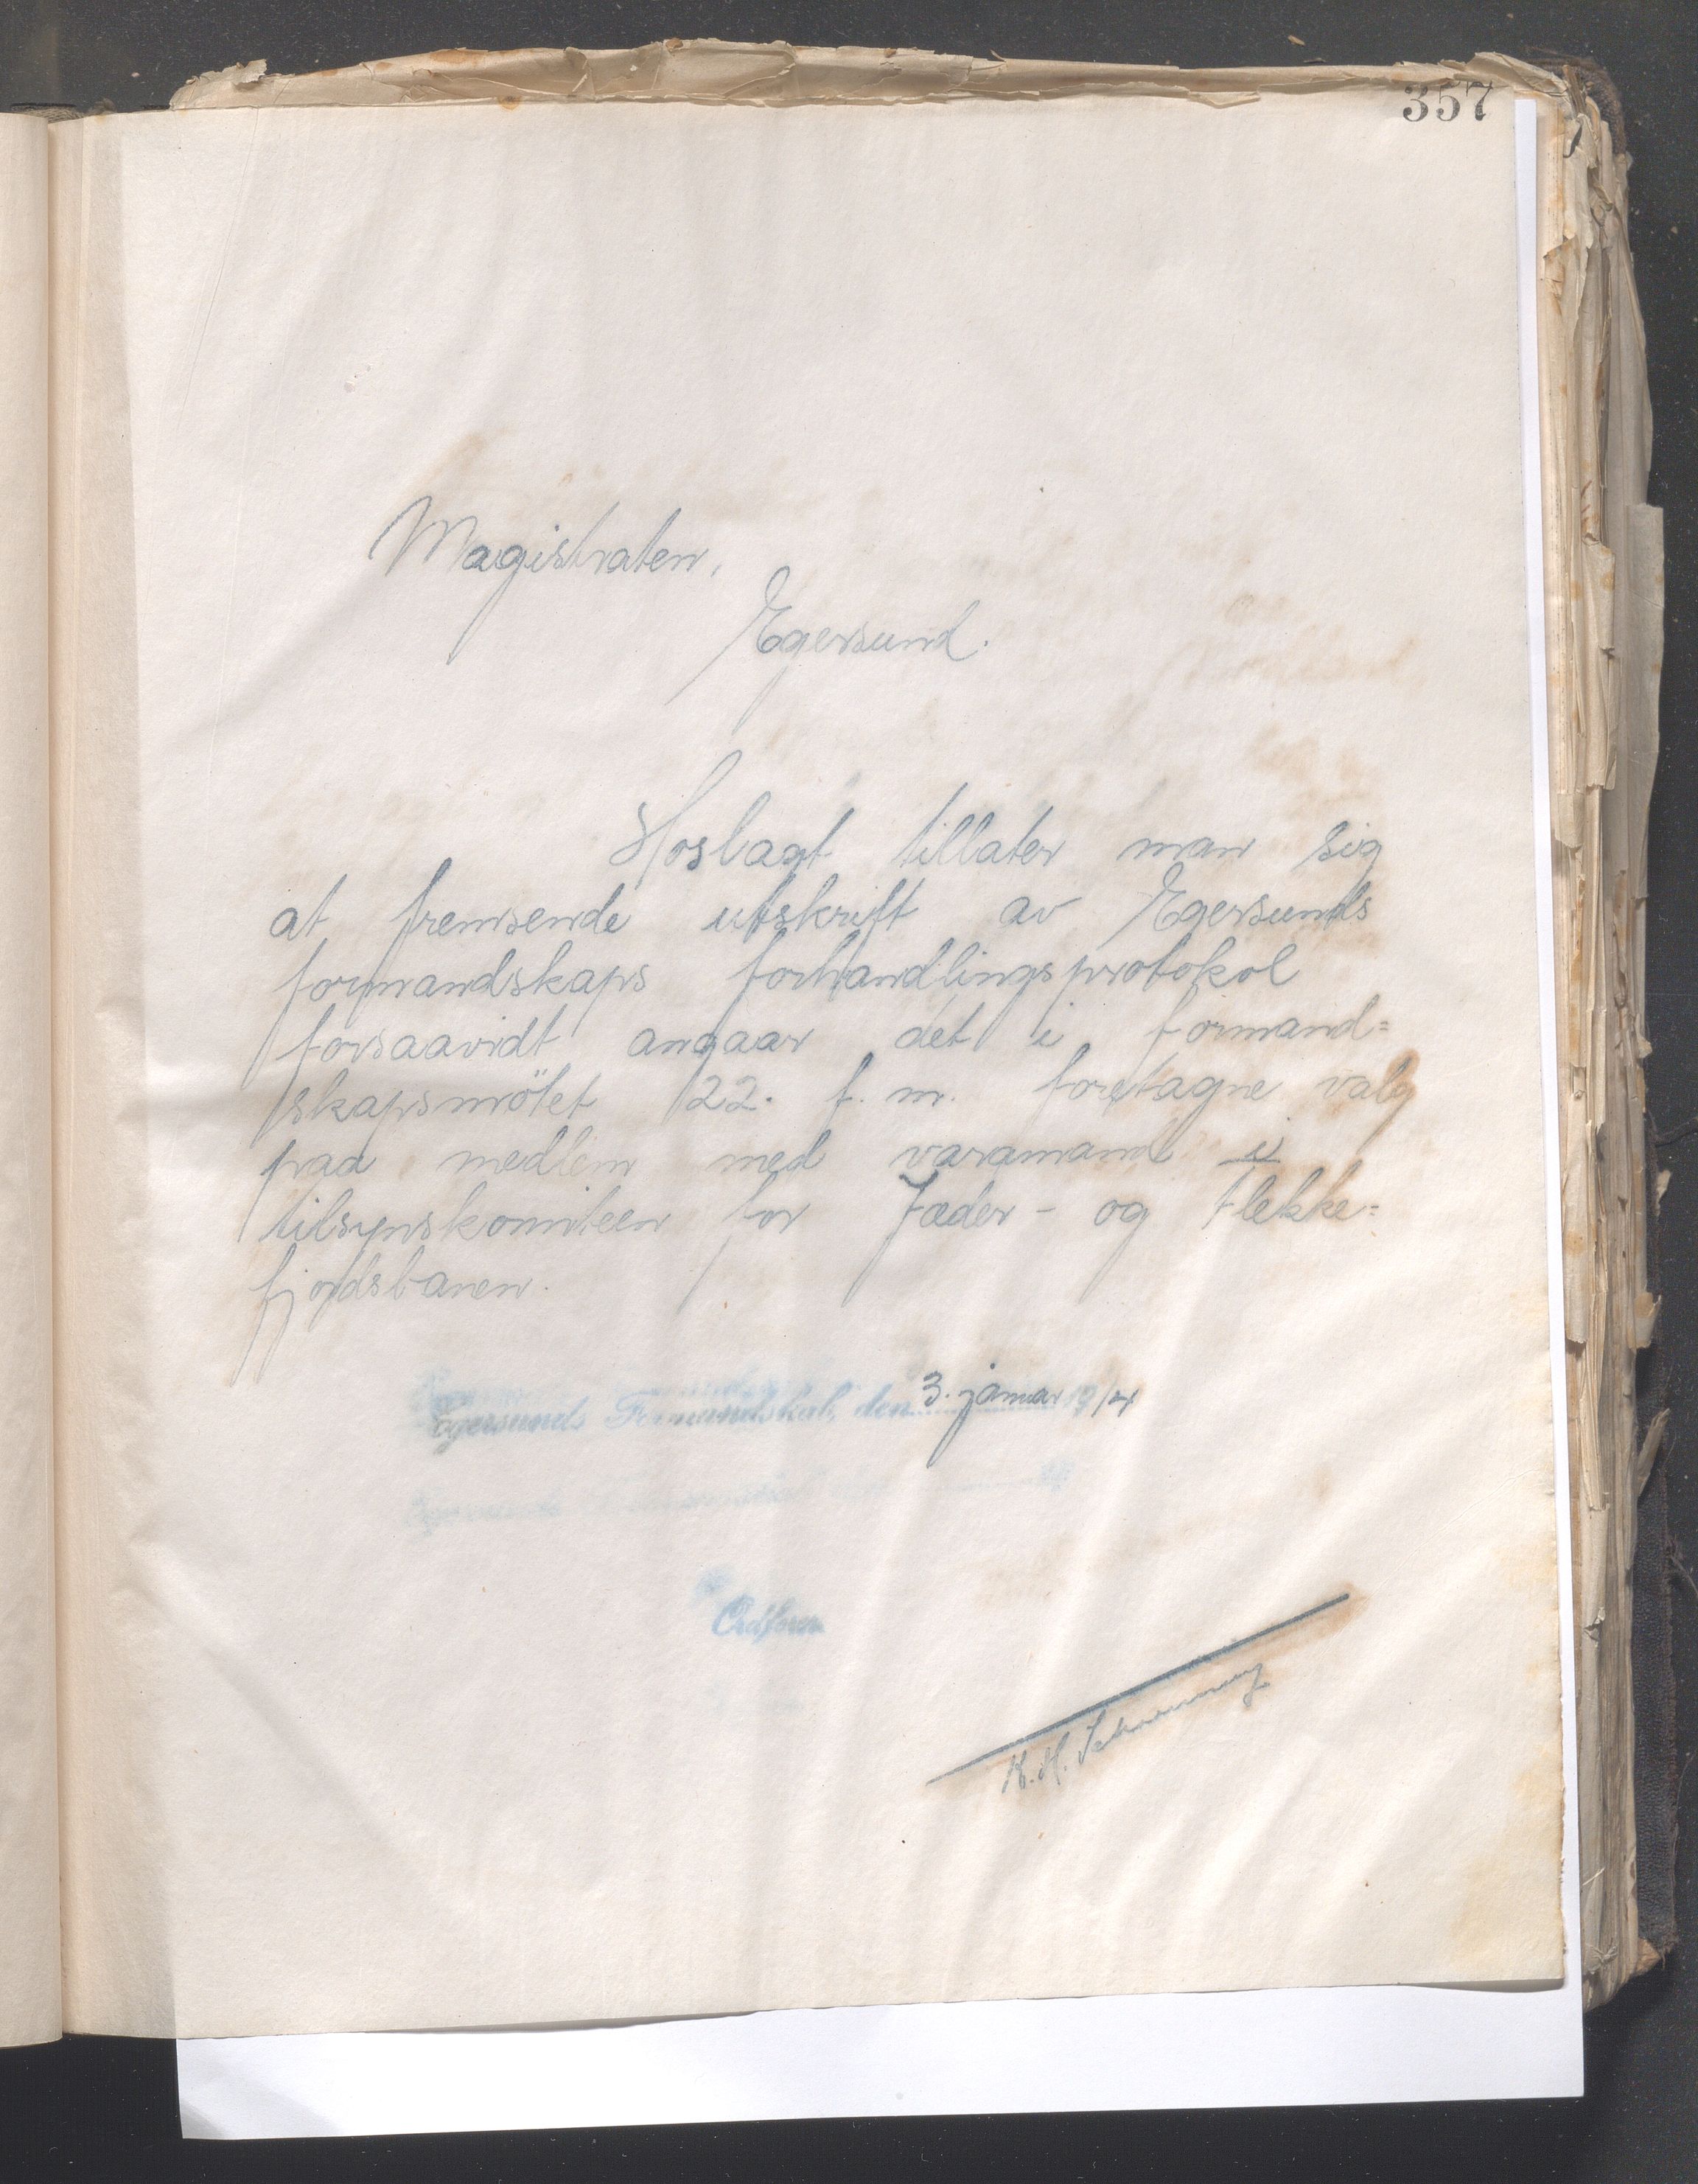 357
Magistraten,
Egersund.
Hoslagt tillater man sig
at fremsende utskrift av Egersunds
formandskaps forhandlingsprotokol
forsaavidt angaar det i formand=
skapsmötet 22. f. m. foretagne valg
paa medlem med varamand i
tilsynskomiteen for Jæder- og Flekke=
fjordsbanen.
Egersunds Formandskab, den 3. januar 1914
Ordfører